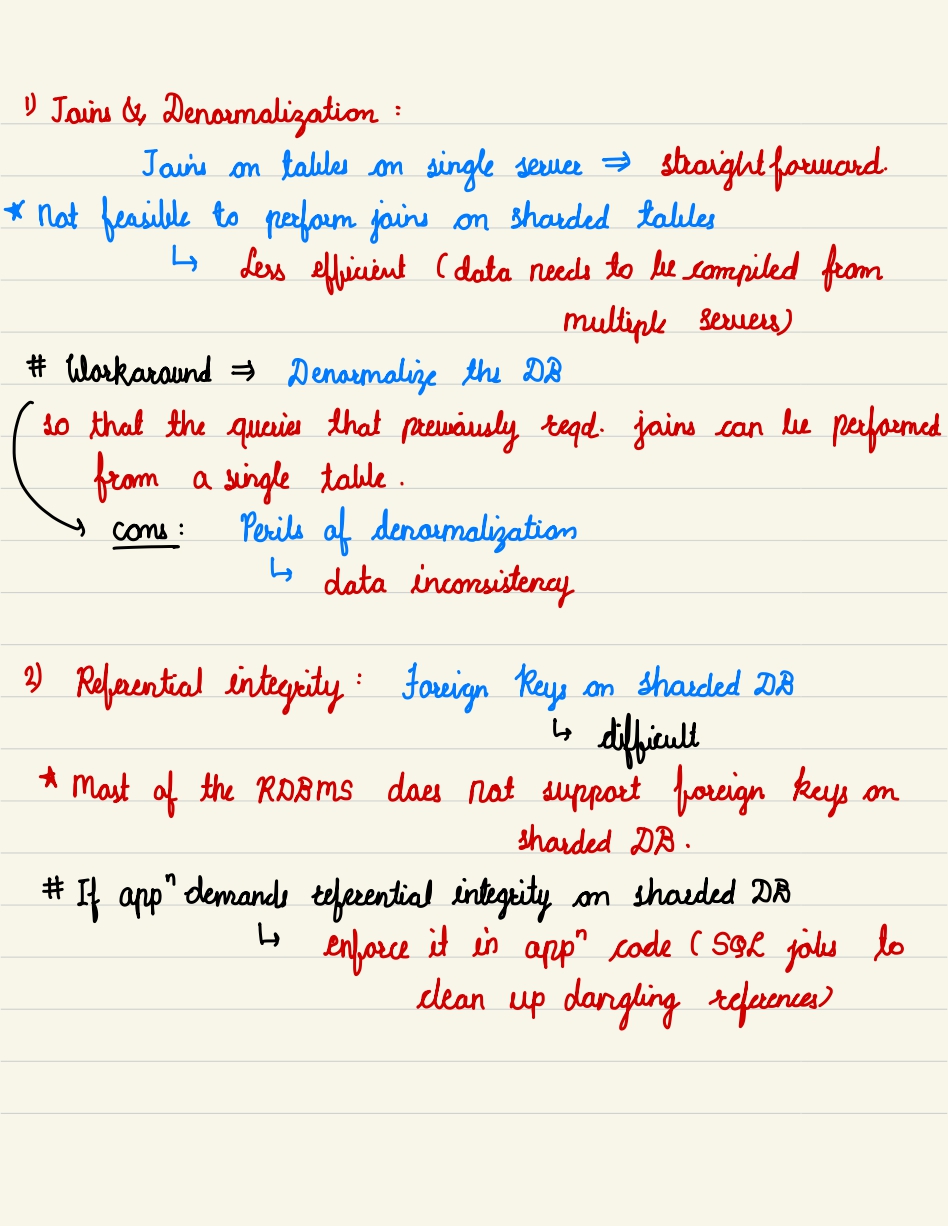 1) Joins & Denormalization :
Joins on tables on single server ⇒ straightforward.
★ Not feasible to perform joins on sharded tables
↳ Less efficient (data needs to be compiled from
multiple servers)
# Workaround ⇒ Denormalize the DB
so that the queries that previously reqd. joins can be performed
from a single table.
cons : Perils of denormalization
↳ data inconsistency
2) Referential integrity : Foreign Keys on sharded DB
↳ difficult
★ Most of the RDBMS does not support foreign keys on
sharded DB.
# If appⁿ demands referential integrity on sharded DB
↳ enforce it in appⁿ code (SQL jobs to
clean up dangling references)